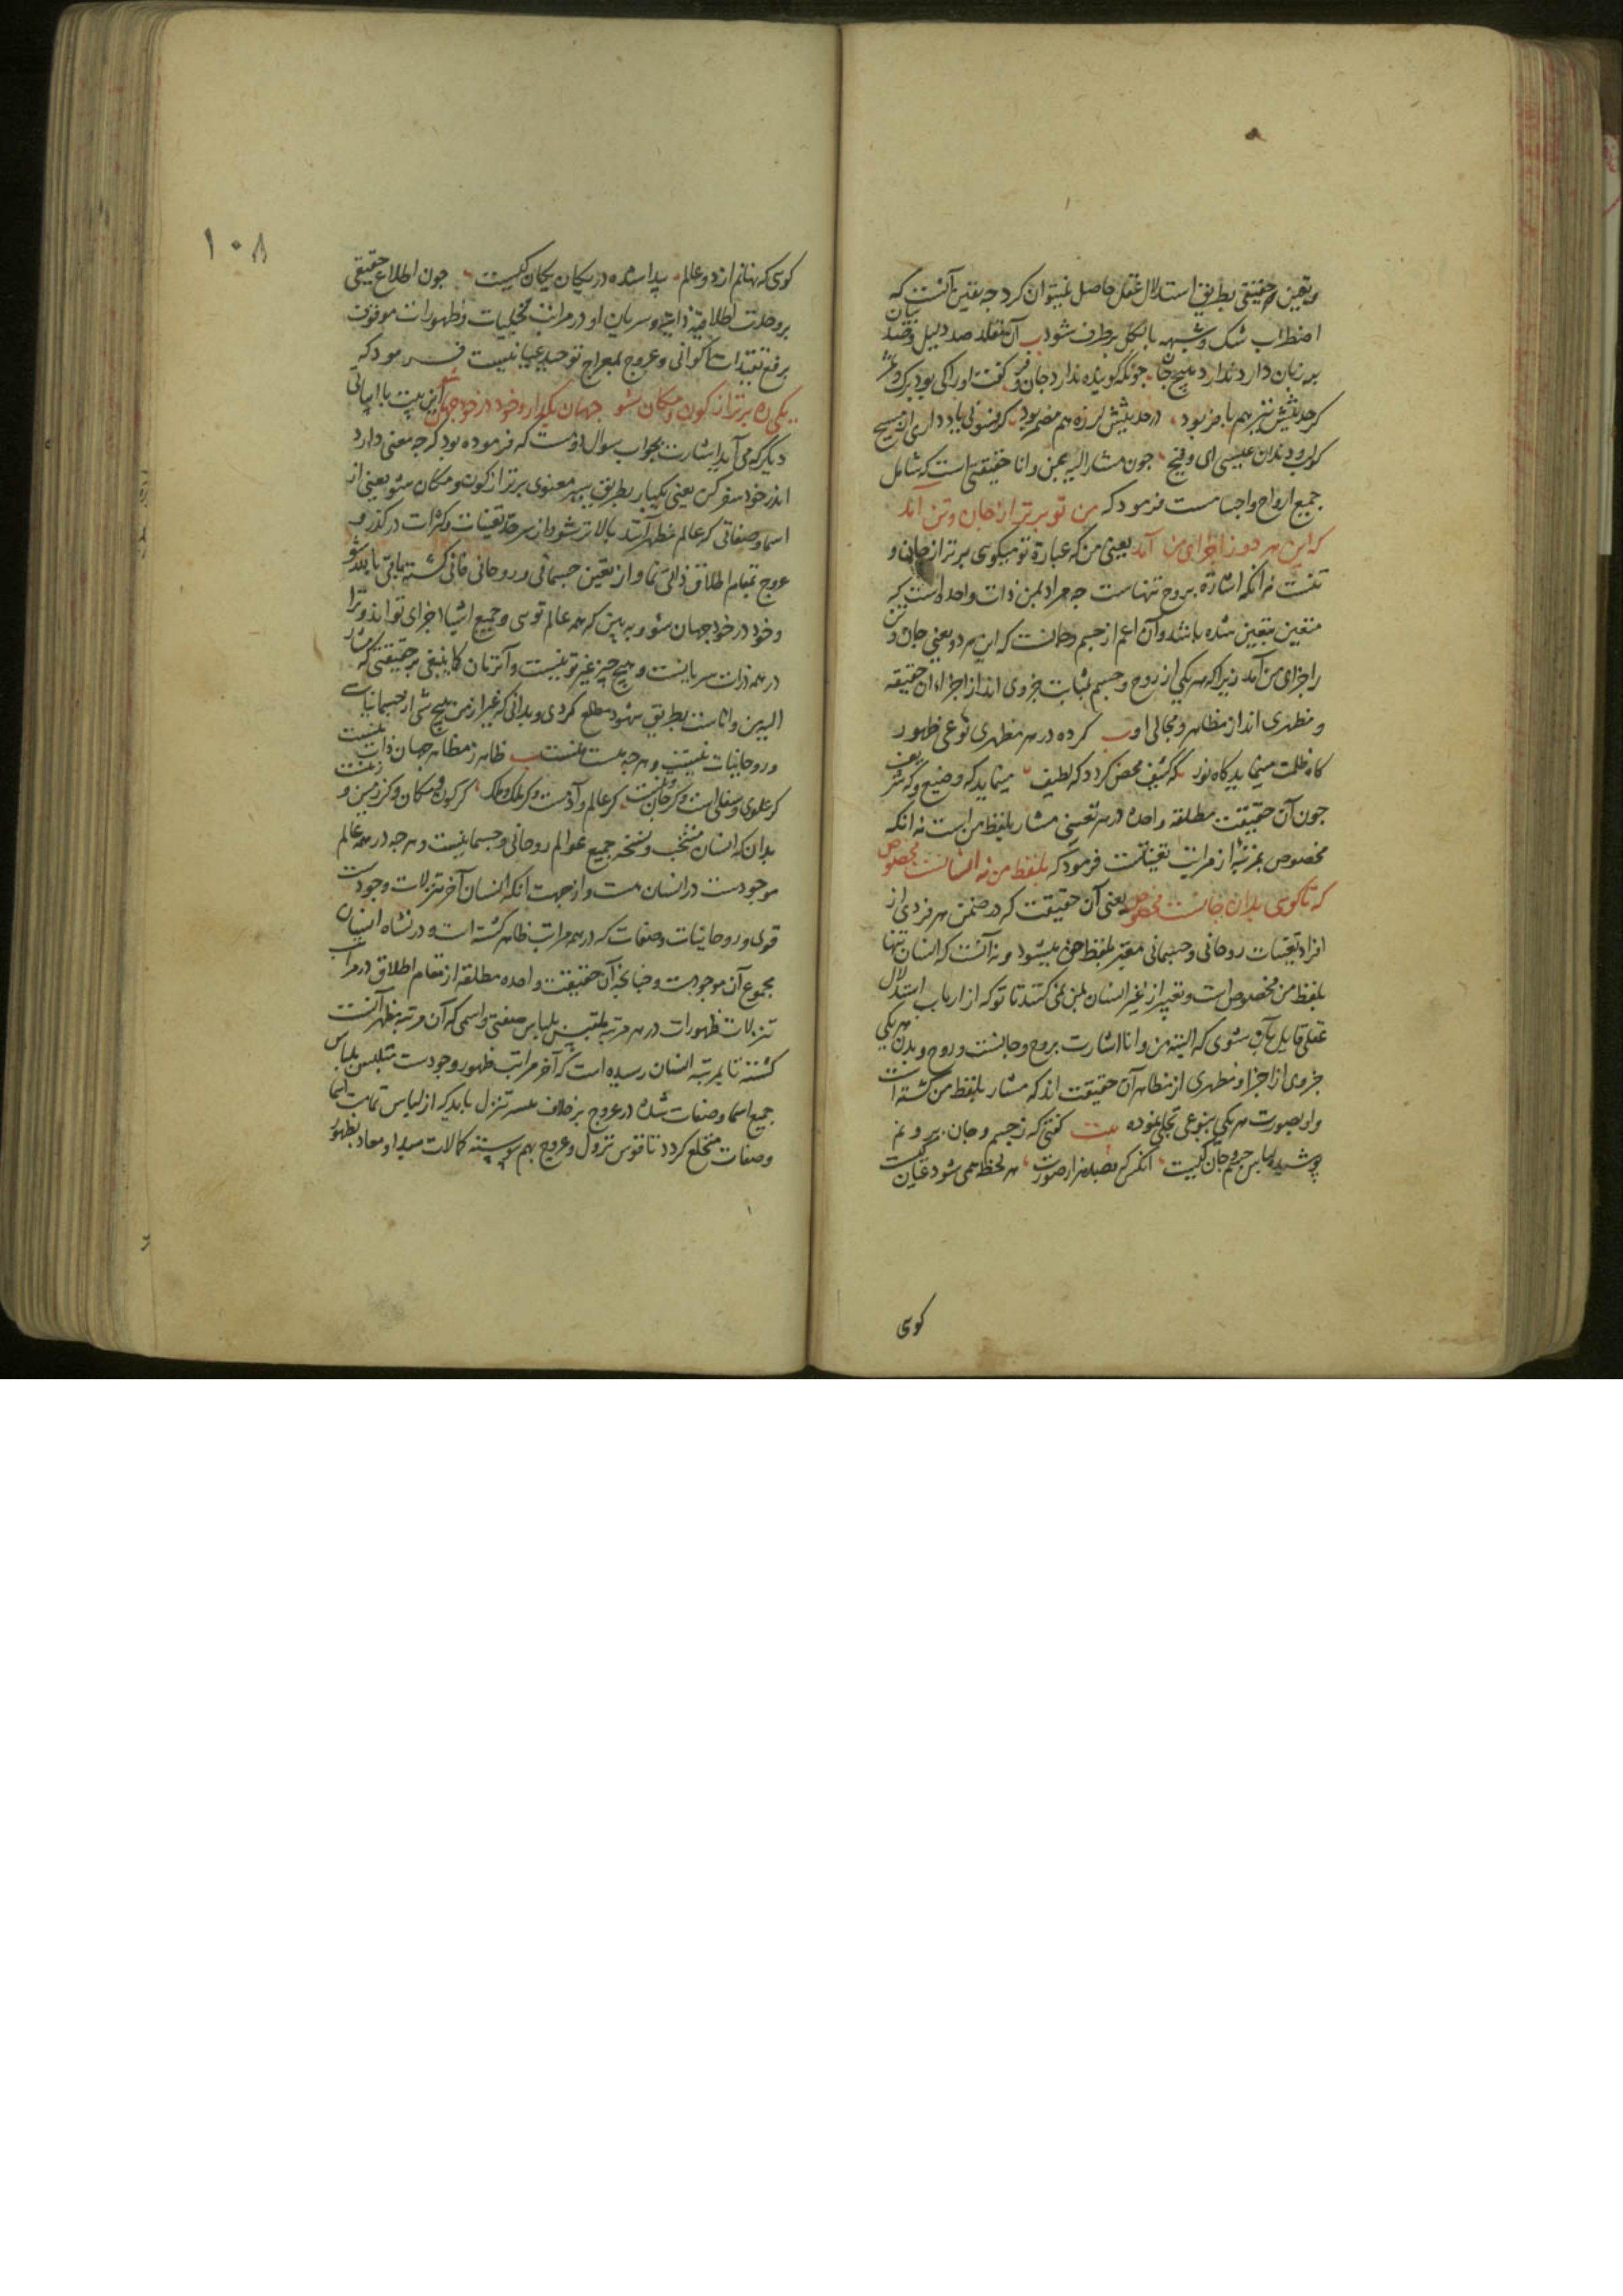 و یقین حقیقی بطریق استدلال عقل حاصل نمیتوان کرد چه یقین آنست که
اضطراب شک و شبهه بالکل برطرف شود ب آن مقلد صد دلیل و صد بیان
بر زبان دارد ندارد هیچ جان چونکه گوینده ندارد جان و فر گفت او را کی بود برک و ثمر
کر حدیثش نیز هم با مز بود در حدیثش لرزه هم مضمر بود کر فسونی یاد داری از مسیح
کو لب و دندان عیسی ای وقیح چون مشار الیه بمن و انا حقیقتی است که شامل
جمیع ارواح و اجسامست فرمود که من تو برتر از جان و تن آمد
که این هر دو ز اجزای من آمد یعنی من که عبارة تو میکوی برتر از جان و
تنست نه انکه اشارة بروح تنهاست چه مراد بمن ذات واحده است که
متعین بتعین شده باشد و آن اعم از جسم و جانست که این هر دو یعنی جان و تن
از اجزای من آمد زیرا که هر یکی از روح و جسم بمثابت جزوی اند از اجزاء ان حقیقة
و مظهری اند از مظاهر و مجالی او ب کرده در هر مظهری نوعی ظهور
کاه ظلمت مینماید کاه نور که کثیف محض کردد که لطیف مینماید که وضیع و که شریف
چون آن حقیقت مطلقه واحده در هر تعینی مشار بلفظ من است نه انکه
مخصوص بمرتبه از مراتب تعیناتست فرمود که بلفظ من نه انسانست مخصوص
که تا کوی بدان جانست مخصوص یعنی آن حقیقت که در ضمن هر فردی از
افراد تعینات روحانی و جسمانی معبر بلفظ من میشود و نه آنست که انسان تنها
بلفظ من مخصوص است و تعبیر از غیر انسان بمن نمی کنند تا تو که از ارباب استدلال
عقلی قایل بآن شوی که البته من و انا اشارت بروح و جانست و روح و بدن هر یکی
جزوی از اجزا و مظهری از مظاهر آن حقیقت اند که مشار بلفظ من کشته است
و او بصورت هر یکی بنوعی تجلی نموده بیت کفتی که ز جسم و جان برونم
پوشیده لباس جسم و جان کیست انکس که بصد هزار صورت هر لحظه همی شود عیان کیست
کوی
۱۰۸
کوی که نهانم از دو عالم پیدا شده در یکان یکان کیست چون اطلاع حقیقی
بر وحدت اطلاقیه ذاتیه و سریان او در مراتب تجلیات و ظهورات موقوف
برفع تقیدات اکوانی و عروج بمعراج توحید عیانیست فرمود که
یکی ره برتر از کون و مکان شو جهان بگذار و خود در خود جهان شو این بیت با ابیاتی
دیگر که می آید اشارت بجواب سوال اوست که فرموده بود که چه معنی دارد
اندر خود سفر کن یعنی یکبار بطریق سیر معنوی برتر از کون و مکان شو یعنی از
اسما و صفاتی که عالم مظهر آنند بالاتر شو و از سرحد تعینات و کثرات درگذر و
عروج بمقام اطلاق ذاتی نما و از تعین جسمانی و روحانی فانی کشته باقی بالله شو
و خود در خود جهان شو و ببین که همه عالم توی و جمیع اشیا اجزای تو اند و ترا
در همه ذرات سریانست و هیچ چیز غیر تو نیست و آنزمان کما ینبغی بر حقیقتی که مشار
الیه من و اناست بطریق شهود مطلع کردی و بدانی که غیر از من هیچ شی از جسمانیات
و روحانیات نیست و هر چه هست منست ب ظاهر ز مظاهر جهان ذات منست
کر علوی و سفلی است و کر جان و تنست کر عالم و آدمست و کر ملک و ملک کر کون و مکان و کر زمین و زمنست
بدان که انسان منتخب و نسخه جمیع عوالم روحانی و جسمانیست و هر چه در همه عالم
موجودست در انسان هست و از جهت آنکه انسان آخر تنزلات وجودست
قوی و روحانیات و صفات که در همه مراتب ظاهر کشته است و در نشاه انسان
مجموع آن موجودست و چنانچه آن حقیقت واحده مطلقه از مقام اطلاق در مراتب
تنزلات ظهورات در هر مرتبه متلبس بلباس صفتی و اسمی که آن مرتبه مظهر آنست
کشته تا بمرتبه انسان رسیده است که آخر مراتب ظهور وجودست متلبس بلباس
جمیع اسما و صفات شده در عروج بر خلاف سیر تنزل باید که از لباس تمامت اسما
و صفات منخلع کردد تا قوس نزول و عروج بهم پیوسته کمالات مبدا و معاد بظهور